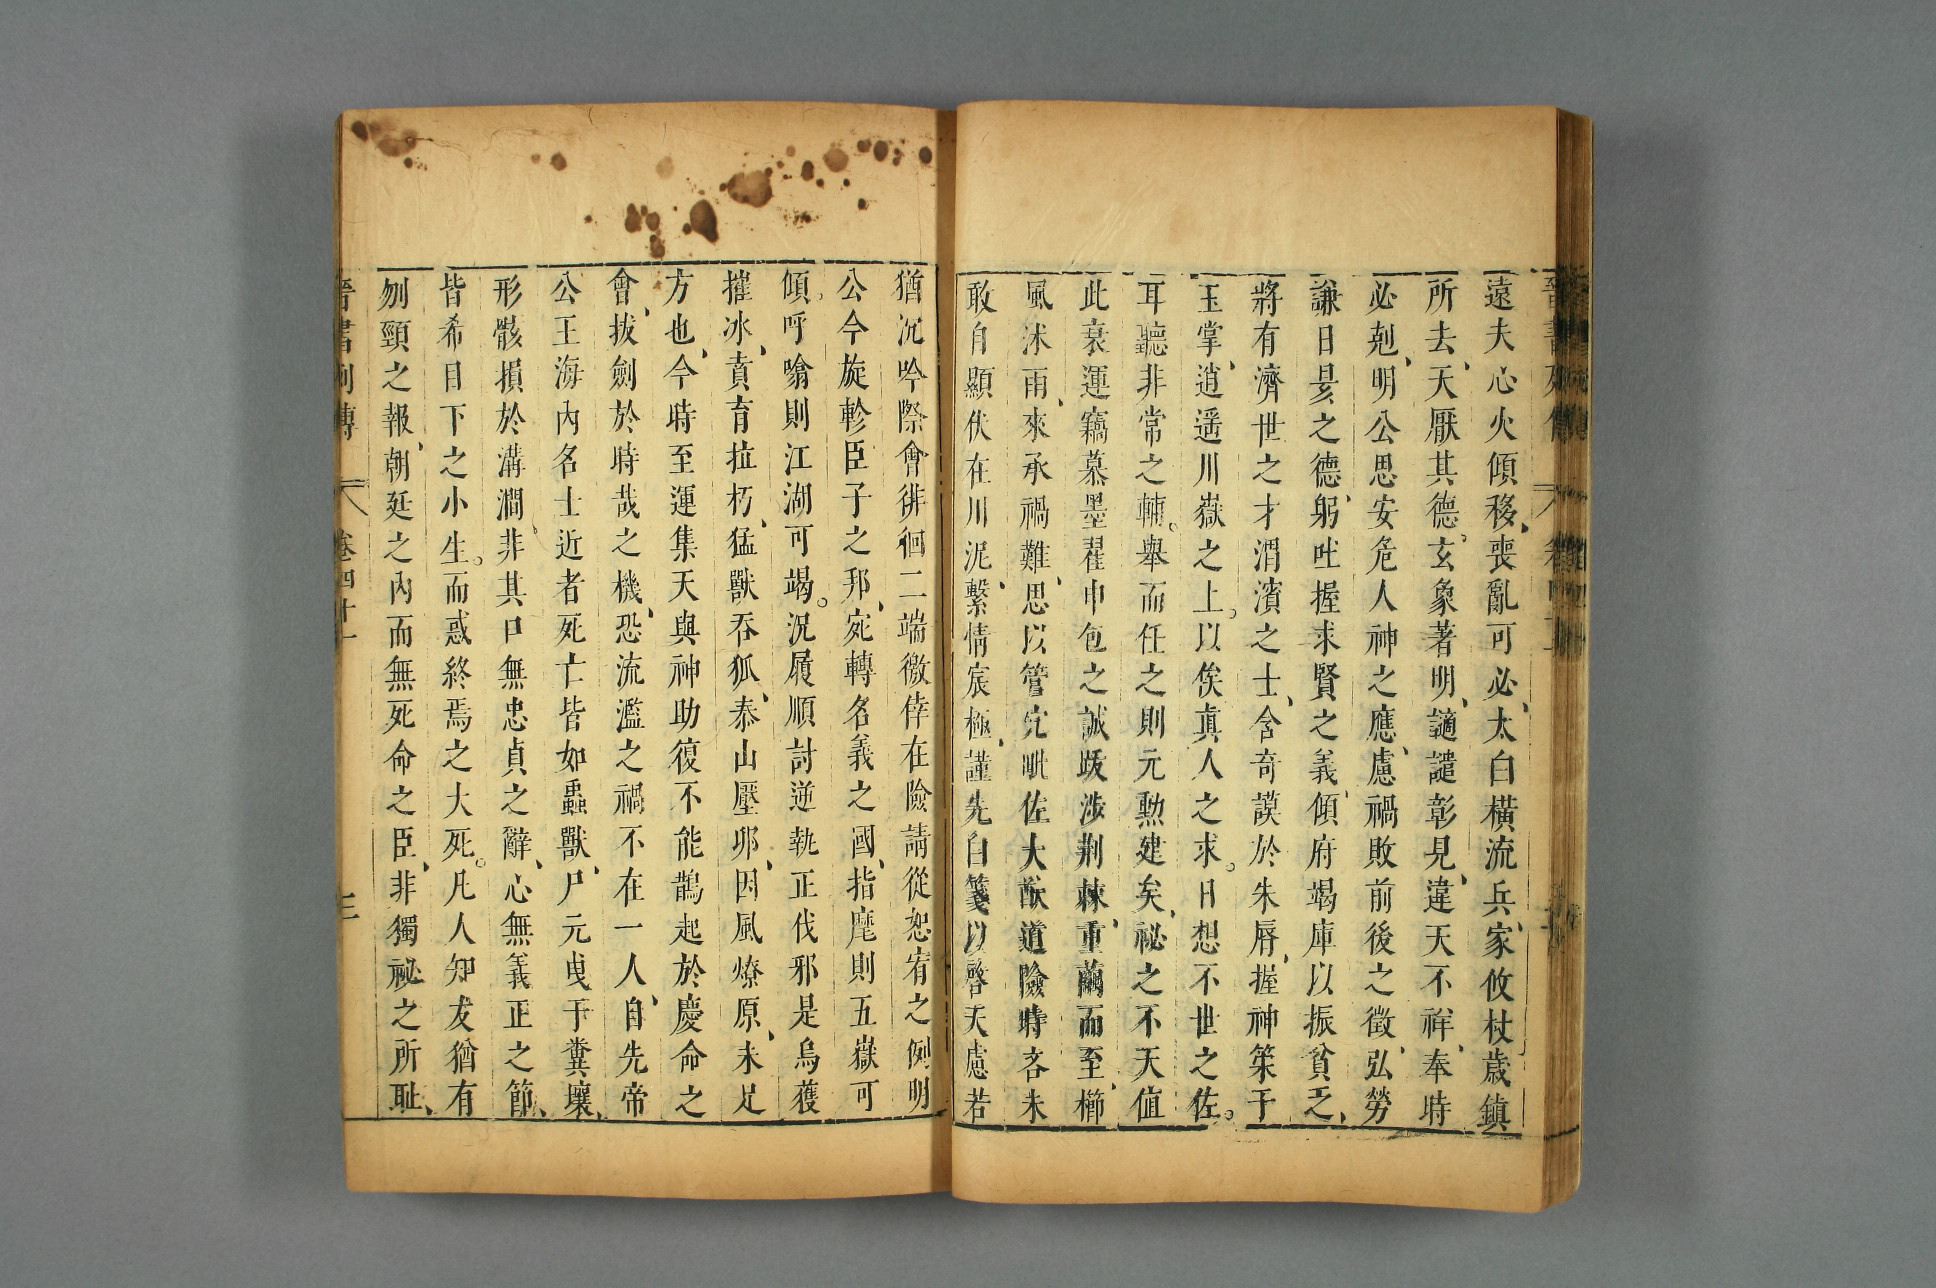 遠夫心火傾移、喪亂可必、太白橫流兵家攸杖歲鎮
所去、天厭其德。玄象著明、讁譴彰見、違天不祥、奉時
必剋、明公思安危人神之應、慮禍敗前後之徵、弘勞
謙日昃之德、躬吐握求賢之義、傾府竭庫以振貧乏、
將有濟世之才渭濱之士、含奇謨於朱脣、握神策于
玉掌、逍遥川嶽之上。以俟真人之求。目想不世之佐。
耳聽非常之輔。舉而任之則元勲建矣、祕之不天值
此衰運竊慕墨翟申包之誠跋涉荆棘、重繭而至、櫛
風沐雨、來承禍難、思以管穴毗佐大猷道險時吝未
敢自顯伏在川泥、繫情宸極、謹先白箋以啓天慮若
猶沉吟際會徘徊二端徼倖在險請從恕宥之例明
公今旋軫臣子之邦、宛轉名義之國、指麾則五嶽可
傾。呼噏則江湖可竭。況履順討逆執正伐邪是烏獲
摧冰、賁育拉朽、猛獸吞狐、泰山壓卵、因風燎原、未足
方也、今時至運集天與神助復不能鵲起於慶命之
會、拔劍於時哉之機、恐流濫之禍不在一人、自先帝
公王海內名士近者死亡皆如蟲獸、尸元曳于糞壤、
形骸損於溝澗。非其口無忠貞之辭、心無義正之節、
皆希目下之小生。而惑終焉之大死。凡人知友猶有
刎頸之報、朝廷之內而無死命之臣、非獨祕之所耻、
晉書列傳 卷四十一 三